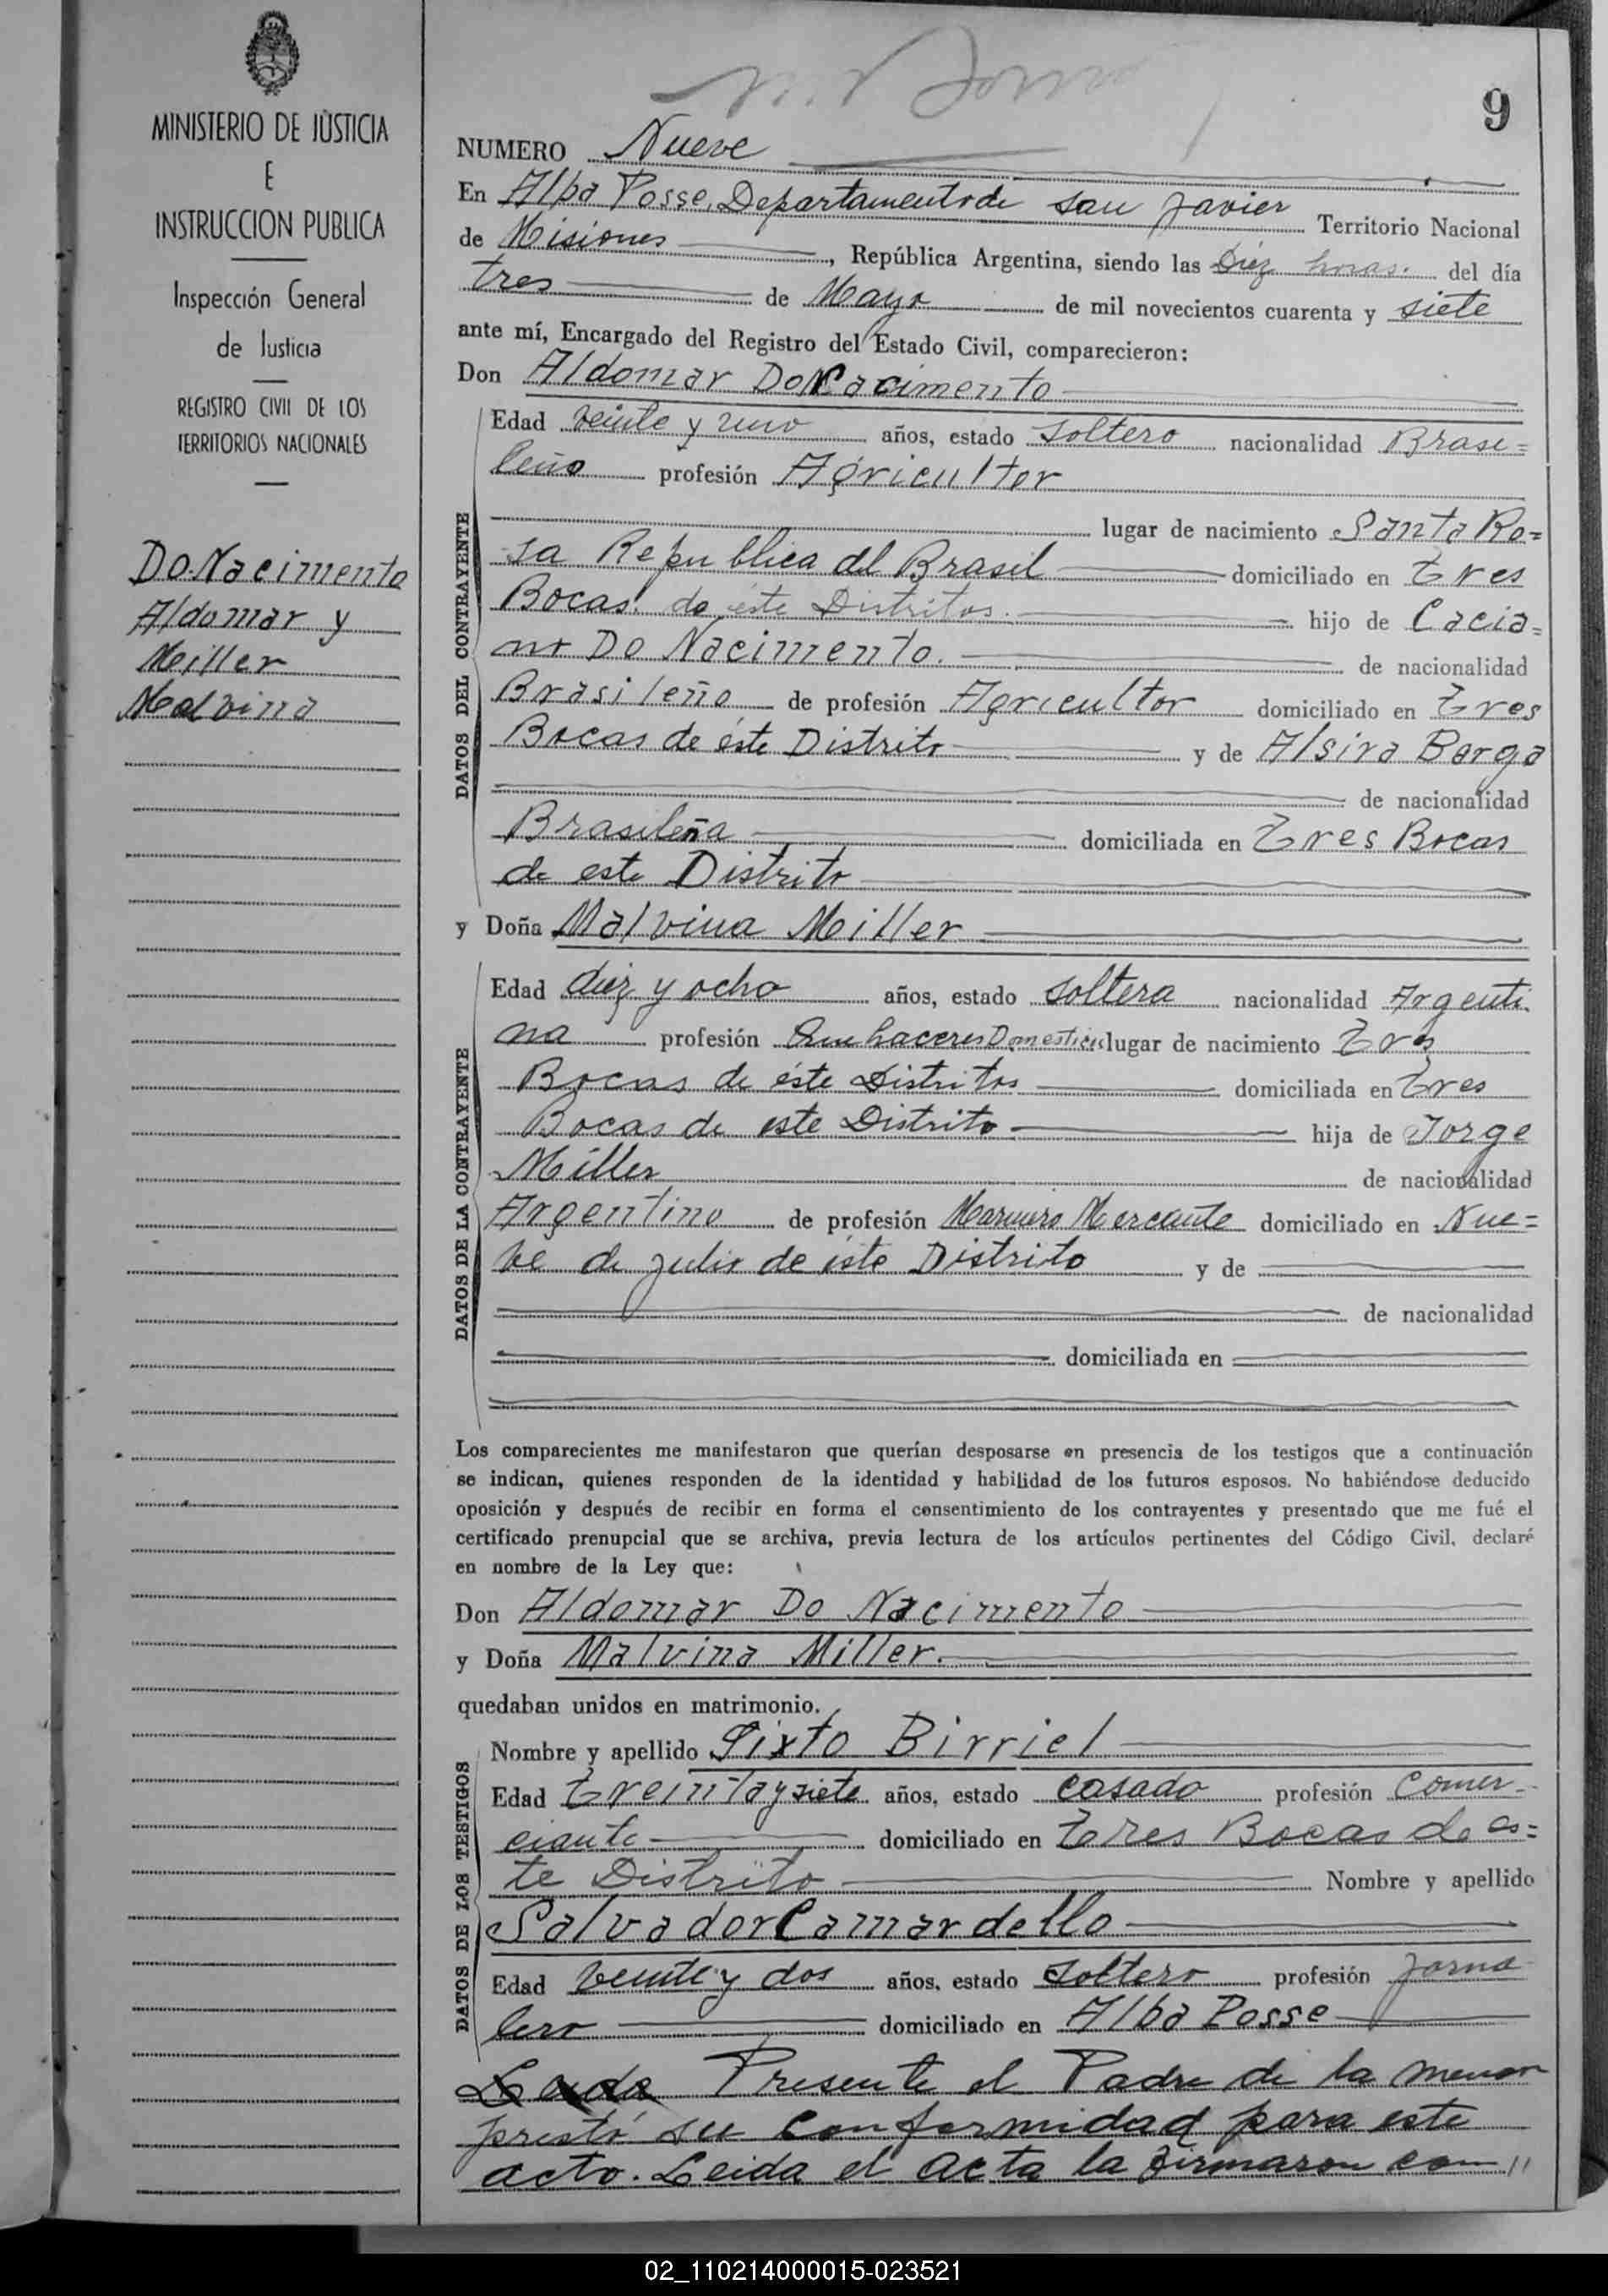 MINISTERIO DE JUSTICIA
E
INSTRUCCION PUBLICA
Inspección General
de Justicia
REGISTRO CIVIL DE LOS
TERRITORIOS NACIONALES
Do Nacimento
Aldomar y
Meiller
Malvina
9
NUMERO Nueve
En Alba Posse, Departamento de San Javier Territorio Nacional
de Misiones, República Argentina, siendo las Diez horas. del día
tres de Mayo de mil novecientos cuarenta y siete
ante mí, Encargado del Registro del Estado Civil, comparecieron:
Don Aldomar Do Nacimento
DATOS DEL CONTRAYENTE
Edad veinte y uno años, estado Soltero nacionalidad Brasi=
leño profesión Agricultor
lugar de nacimiento Santa Ro=
sa Republica del Brasil domiciliado en Tres
Bocas de éste Distritos. hijo de Cacia=
no Do Nacimento. de nacionalidad
Brasileño de profesión Agricultor domiciliado en Tres
Bocas de éste Distrito y de Alsira Barga
de nacionalidad
Brasileña domiciliada en Tres Bocas
de este Distrito
y Doña Malvina Meiller
DATOS DE LA CONTRAYENTE
Edad diez y ocho años, estado Soltera nacionalidad Argenti
na profesión Quehaceres Domesticos lugar de nacimiento Tres
Bocas de éste Distritos domiciliada en Tres
Bocas de este Distrito hija de Jorge
Miller de nacionalidad
Argentino de profesión Marinero Mercante domiciliado en Nue=
ve de julio de éste Distrito y de
de nacionalidad
domiciliada en
Los comparecientes me manifestaron que querían desposarse en presencia de los testigos que a continuación
se indican, quienes responden de la identidad y habilidad de los futuros esposos. No habiéndose deducido
oposición y después de recibir en forma el consentimiento de los contrayentes y presentado que me fué el
certificado prenupcial que se archiva, previa lectura de los artículos pertinentes del Código Civil, declaré
en nombre de la Ley que:
Don Aldomar Do Nacimento
y Doña Malvina Miller.
quedaban unidos en matrimonio.
DATOS DE LOS TESTIGOS
Nombre y apellido Sixto Birriel
Edad Treinta y siete años, estado casado profesión Comer-
ciante domiciliado en Tres Bocas de es=
te Distrito Nombre y apellido
Salvador Camardello
Edad veinte y dos años, estado Soltero profesión Jorna
lero domiciliado en Alba Posse
Presente el Padre de la menor
prestó su conformidad para este
acto. Leida el acta la firmaron con //
02_110214000015-023521